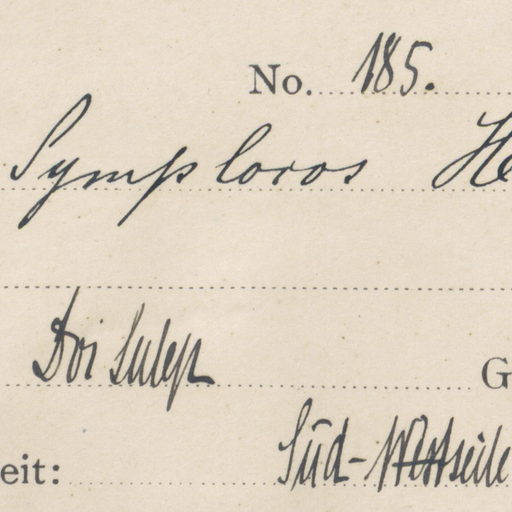 No. 185.
Symplocos He
Doi Sutep G
eit: Süd-Westseite